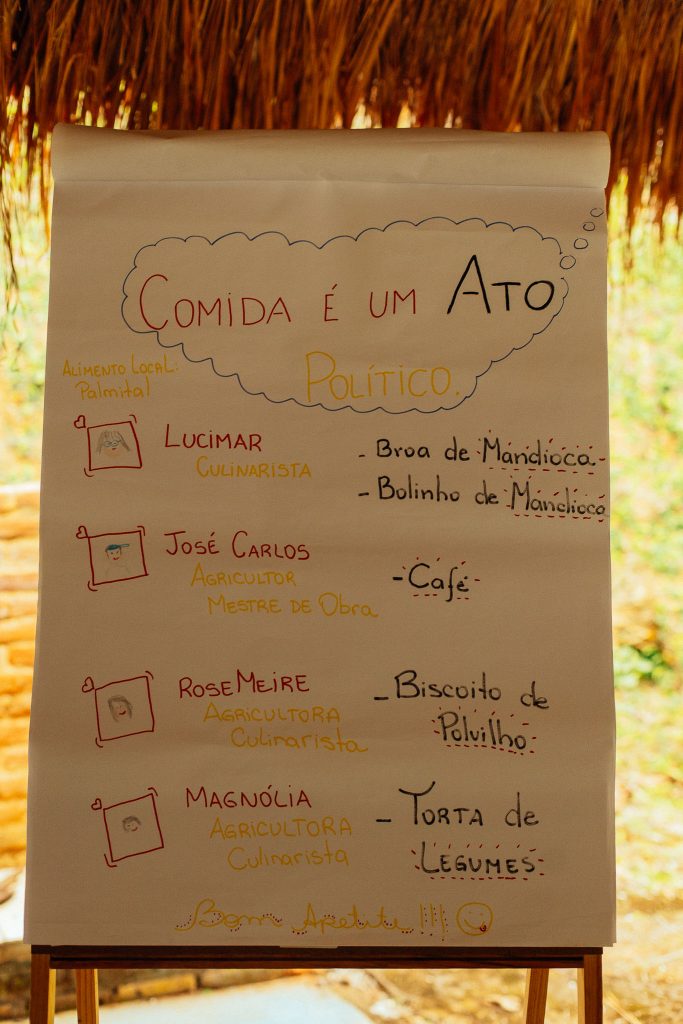 COMIDA É UM ATO
POLÍTICO.
ALIMENTO LOCAL:
Palmital
LUCIMAR
CULINARISTA
- Broa de Mandioca
- Bolinho de Mandioca
JOSÉ CARLOS
AGRICULTOR
MESTRE DE Obra
- Café
ROSEMEIRE
AGRICULTORA
Culinarista
- Biscoito de
Polvilho
MAGNÓLIA
AGRICULTORA
Culinarista
- TORTA de
LEGUMES
Bom Apetite!!!